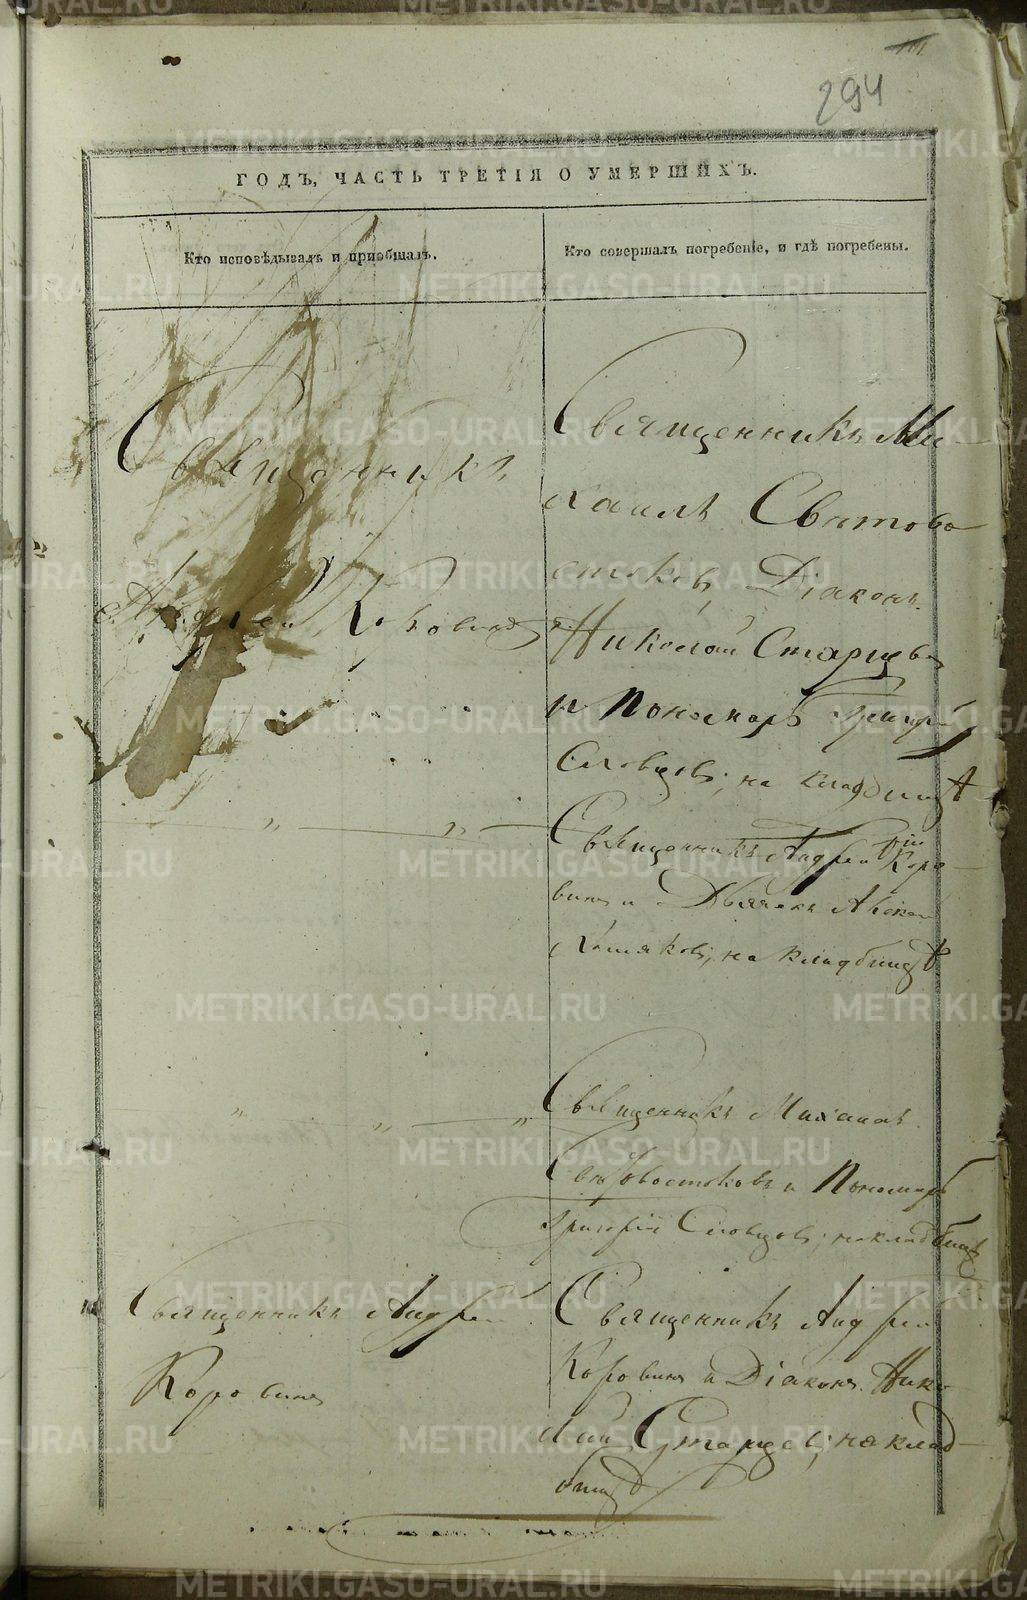 294
ГОДЪ, ЧАСТЬ ТРЕТІЯ О УМЕРШИХЪ.
Кто исповѣдывалъ и пріобщалъ.
Кто совершалъ погребеніе, и гдѣ погребены.
Священникъ
Андрей Коровинъ
Священникъ Ми
хаилъ Святово
стоковъ, Діаконъ
Николай Старцевъ
и Пономарь Григорій
Словцовъ; на кладбищѣ
Священникъ Андрей Коро
винъ и Дьячекъ
на кладбищѣ
Священникъ Михаилъ
Святовостоковъ и Пономарь
Григорій Словцовъ; на кладбищѣ
Священникъ Андрей
Коровинъ
Священникъ Андрей
Коровинъ и Діаконъ Нико
лай Старцевъ; на клад
бищѣ
METRIKI.GASO-URAL.RU